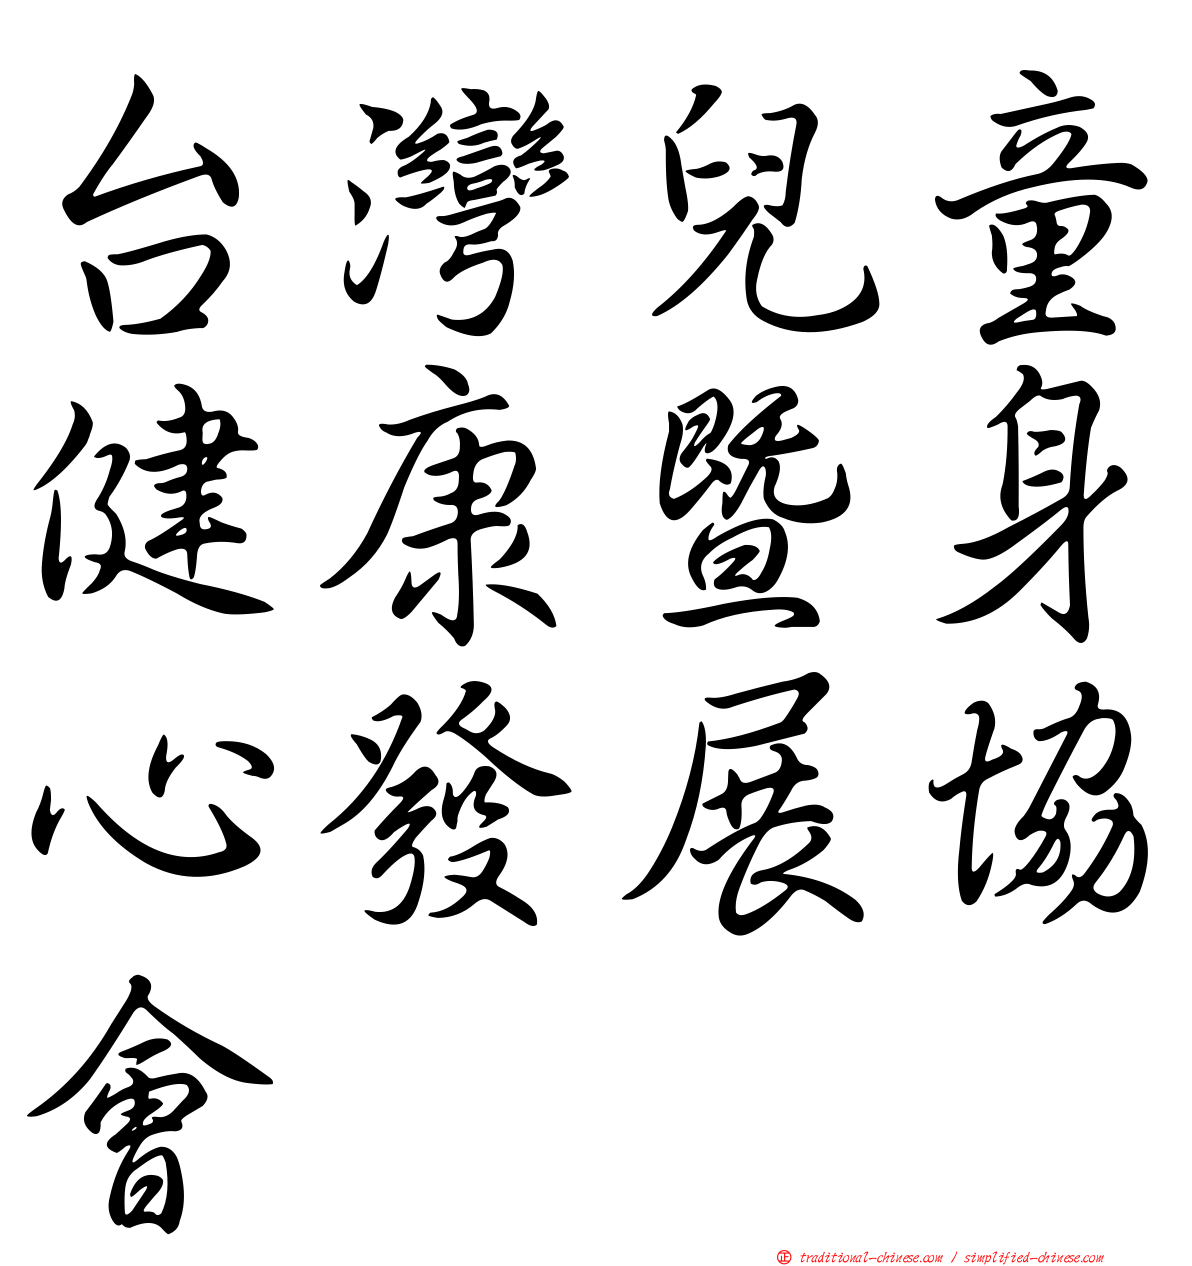 台灣兒童
健康暨身
心發展協
會
正 traditional-chinese.com / simplified-chinese.com